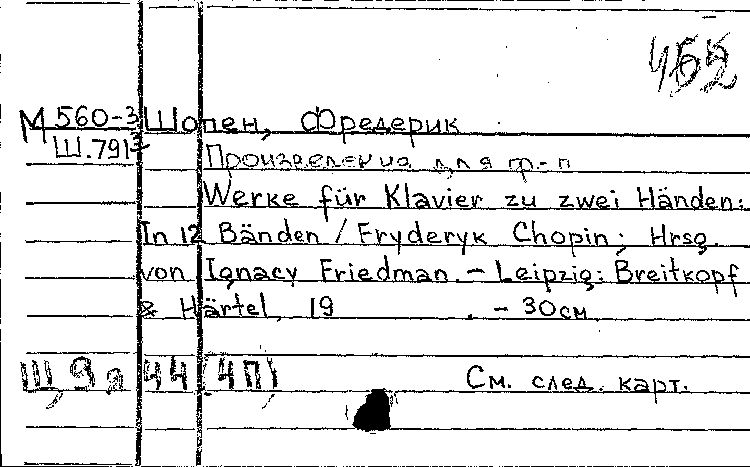 М 560-3 Шопен, Фредерик
Ш.791
Произведения для ф-п
Werke für Klavier zu zwei Händen:
In 12 Bänden / Fryderyk Chopin; Hrsg.
von Ignacy Friedman. – Leipzig: Breitkopf
& Härtel, 19 . – 30см.
Щ, 9 я 44 (4П)
См. след. карт.